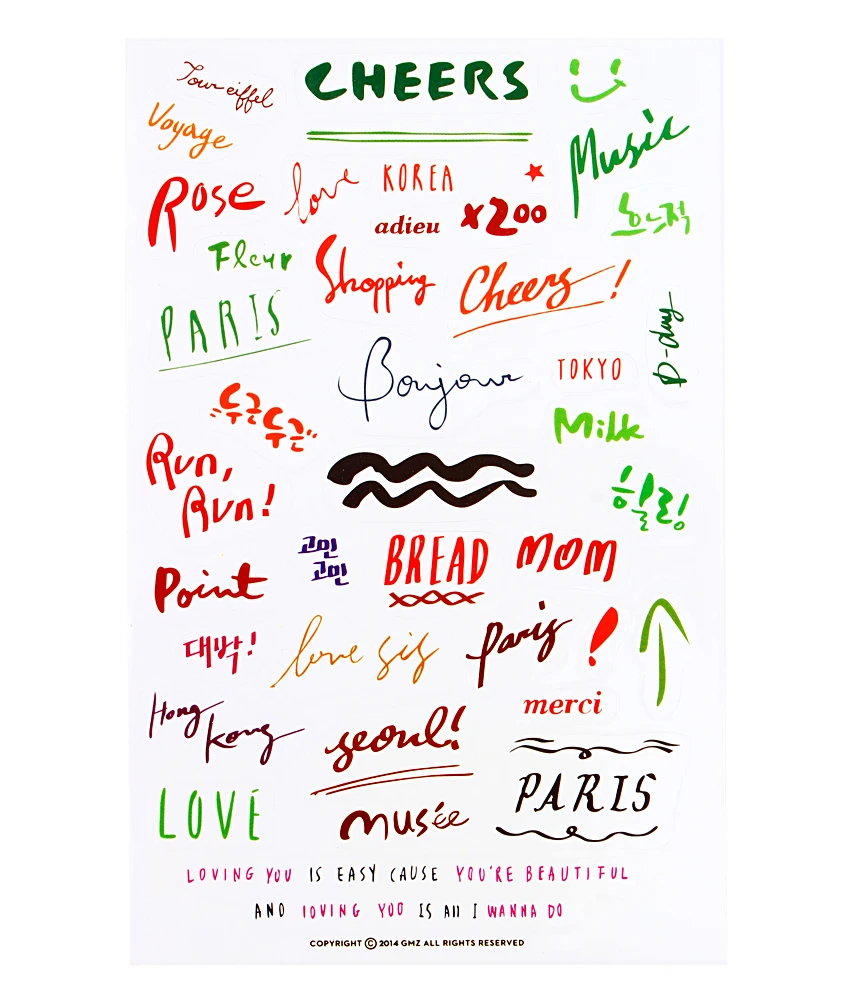 Tour eiffel
CHEERS
Voyage
Music
Rose
love
KOREA
adieu
x200
흐느적
Fleur
Shopping
Cheers !
PARIS
D-day
Bonjour
TOKYO
두근두근
Milk
Run,
Run!
힐링
고민
고민
BREAD
MOM
Point
대박!
love sis
paris
!
merci
Hong
Kong
seoul!
PARIS
LOVE
musée
LOVING YOU IS EASY CAUSE YOU'RE BEAUTIFUL
AND lOVING YOU IS All I WANNA DO
COPYRIGHT © 2014 GMZ ALL RIGHTS RESERVED